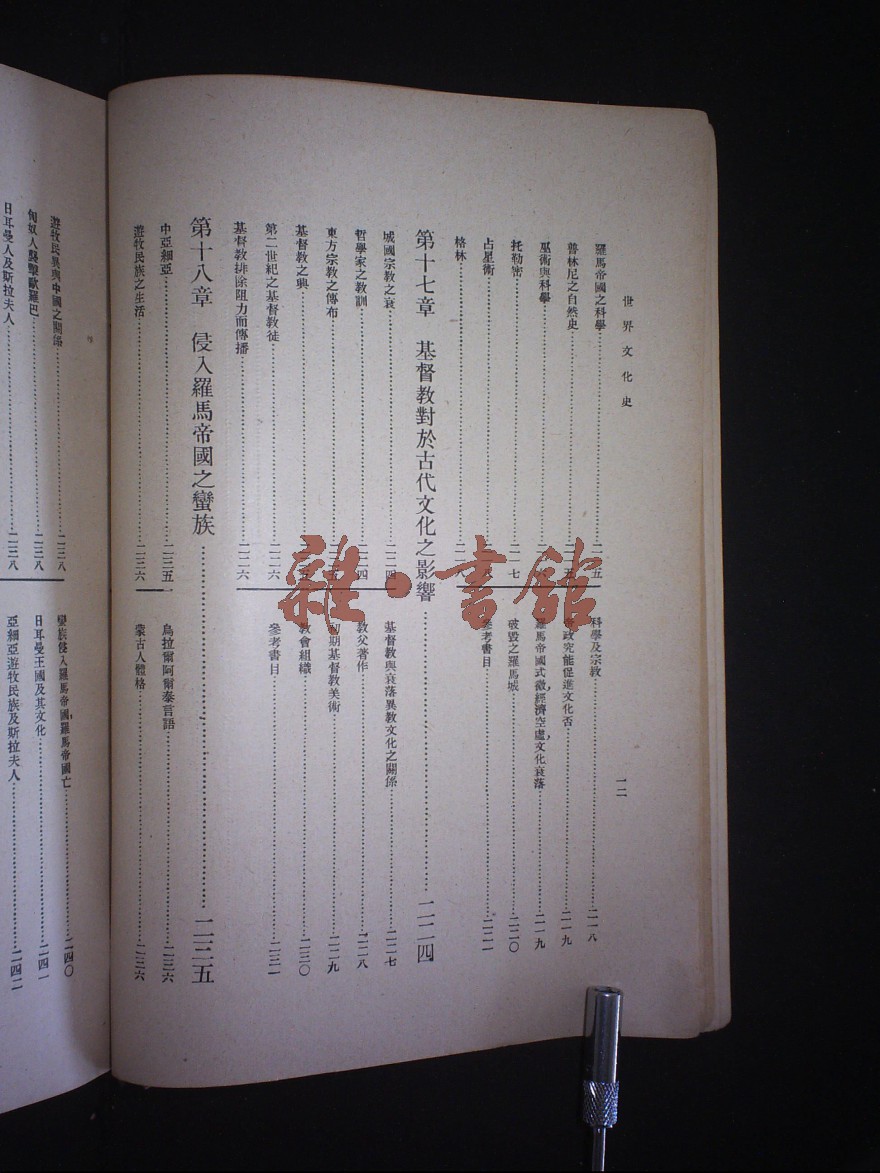 世界文化史
一二
羅馬帝國之科學
普林尼之自然史
巫術與科學
托勒密……二一七
占星術
格林……二一八
科學及宗教……二一八
政究能促進文化否……二一九
羅馬帝國式微,經濟空虛,文化衰落……二一九
破毀之羅馬城……二二〇
參考書目……二二一
第十七章 基督教對於古代文化之影響……二二四
城國宗教之衰……二二四
哲學家之教訓……二二四
東方宗教之傳布
基督教之興
第二世紀之基督教徒……二二六
基督教排除阻力而傳播……二二六
基督教與衰落異教文化之關係……二二七
教父著作……二二八
初期基督教美術……二二九
教會組織……二三〇
參考書目……二三一
第十八章 侵入羅馬帝國之蠻族……二三五
中亞細亞……二三五
遊牧民族之生活……二三六
烏拉爾阿爾泰言語……二三六
蒙古人體格……二三六
遊牧民異與中國之關係……二三八
匈奴人襲擊歐羅巴……二三八
日耳曼人及斯拉夫人……二三八
蠻族侵入羅馬帝國,羅馬帝國亡……二四〇
日耳曼王國及其文化……二四一
亞細亞遊牧民族及斯拉夫人……二四二
雜·書館